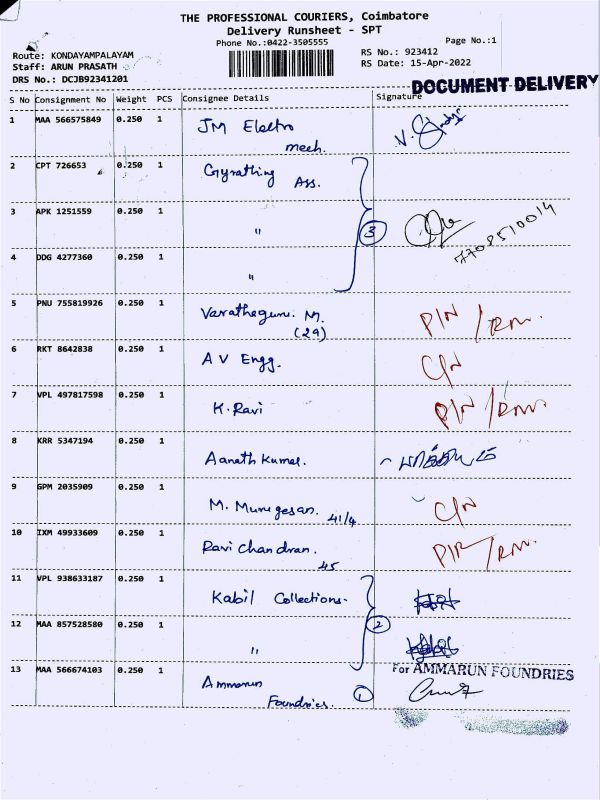 THE PROFESSIONAL COURIERS, Coimbatore
Delivery Runsheet - SPT
Phone No.:0422-3505555
Page No.:1
Route: KONDAYAMPALAYAM
RS No.: 923412
Staff: ARUN PRASATH
RS Date: 15-Apr-2022
DRS No.: DCJB92341201
DOCUMENT DELIVERY
S No Consignment No Weight PCS Consignee Details Signature
1 MAA 566575849 0.250 1 JM Electro
mech.
2 CPT 726653 0.250 1
Ass.
3 APK 1251559 0.250 1 "
3
7708510014
4 DDG 4277360 0.250 1 "
5 PNU 755819926 0.250 1 Varatheguru. M.
(29)
P/N /RM.
6 RKT 8642838 0.250 1 A V Engg. C/N
7 VPL 497817598 0.250 1 K. Ravi P/N /RM.
8 KRR 5347194 0.250 1 Aanath Kumar.
9 GPM 2035909 0.250 1 M. Murugesan. 41/4 C/N
10 IXM 49933609 0.250 1 Ravi Chandran.
45
/RM.
11 VPL 938633187 0.250 1 Kabil Collections-
12 MAA 857528580 0.250 1 "
2
13 MAA 566674103 0.250 1 Ammarun
Foundries. 1
For AMMARUN FOUNDRIES